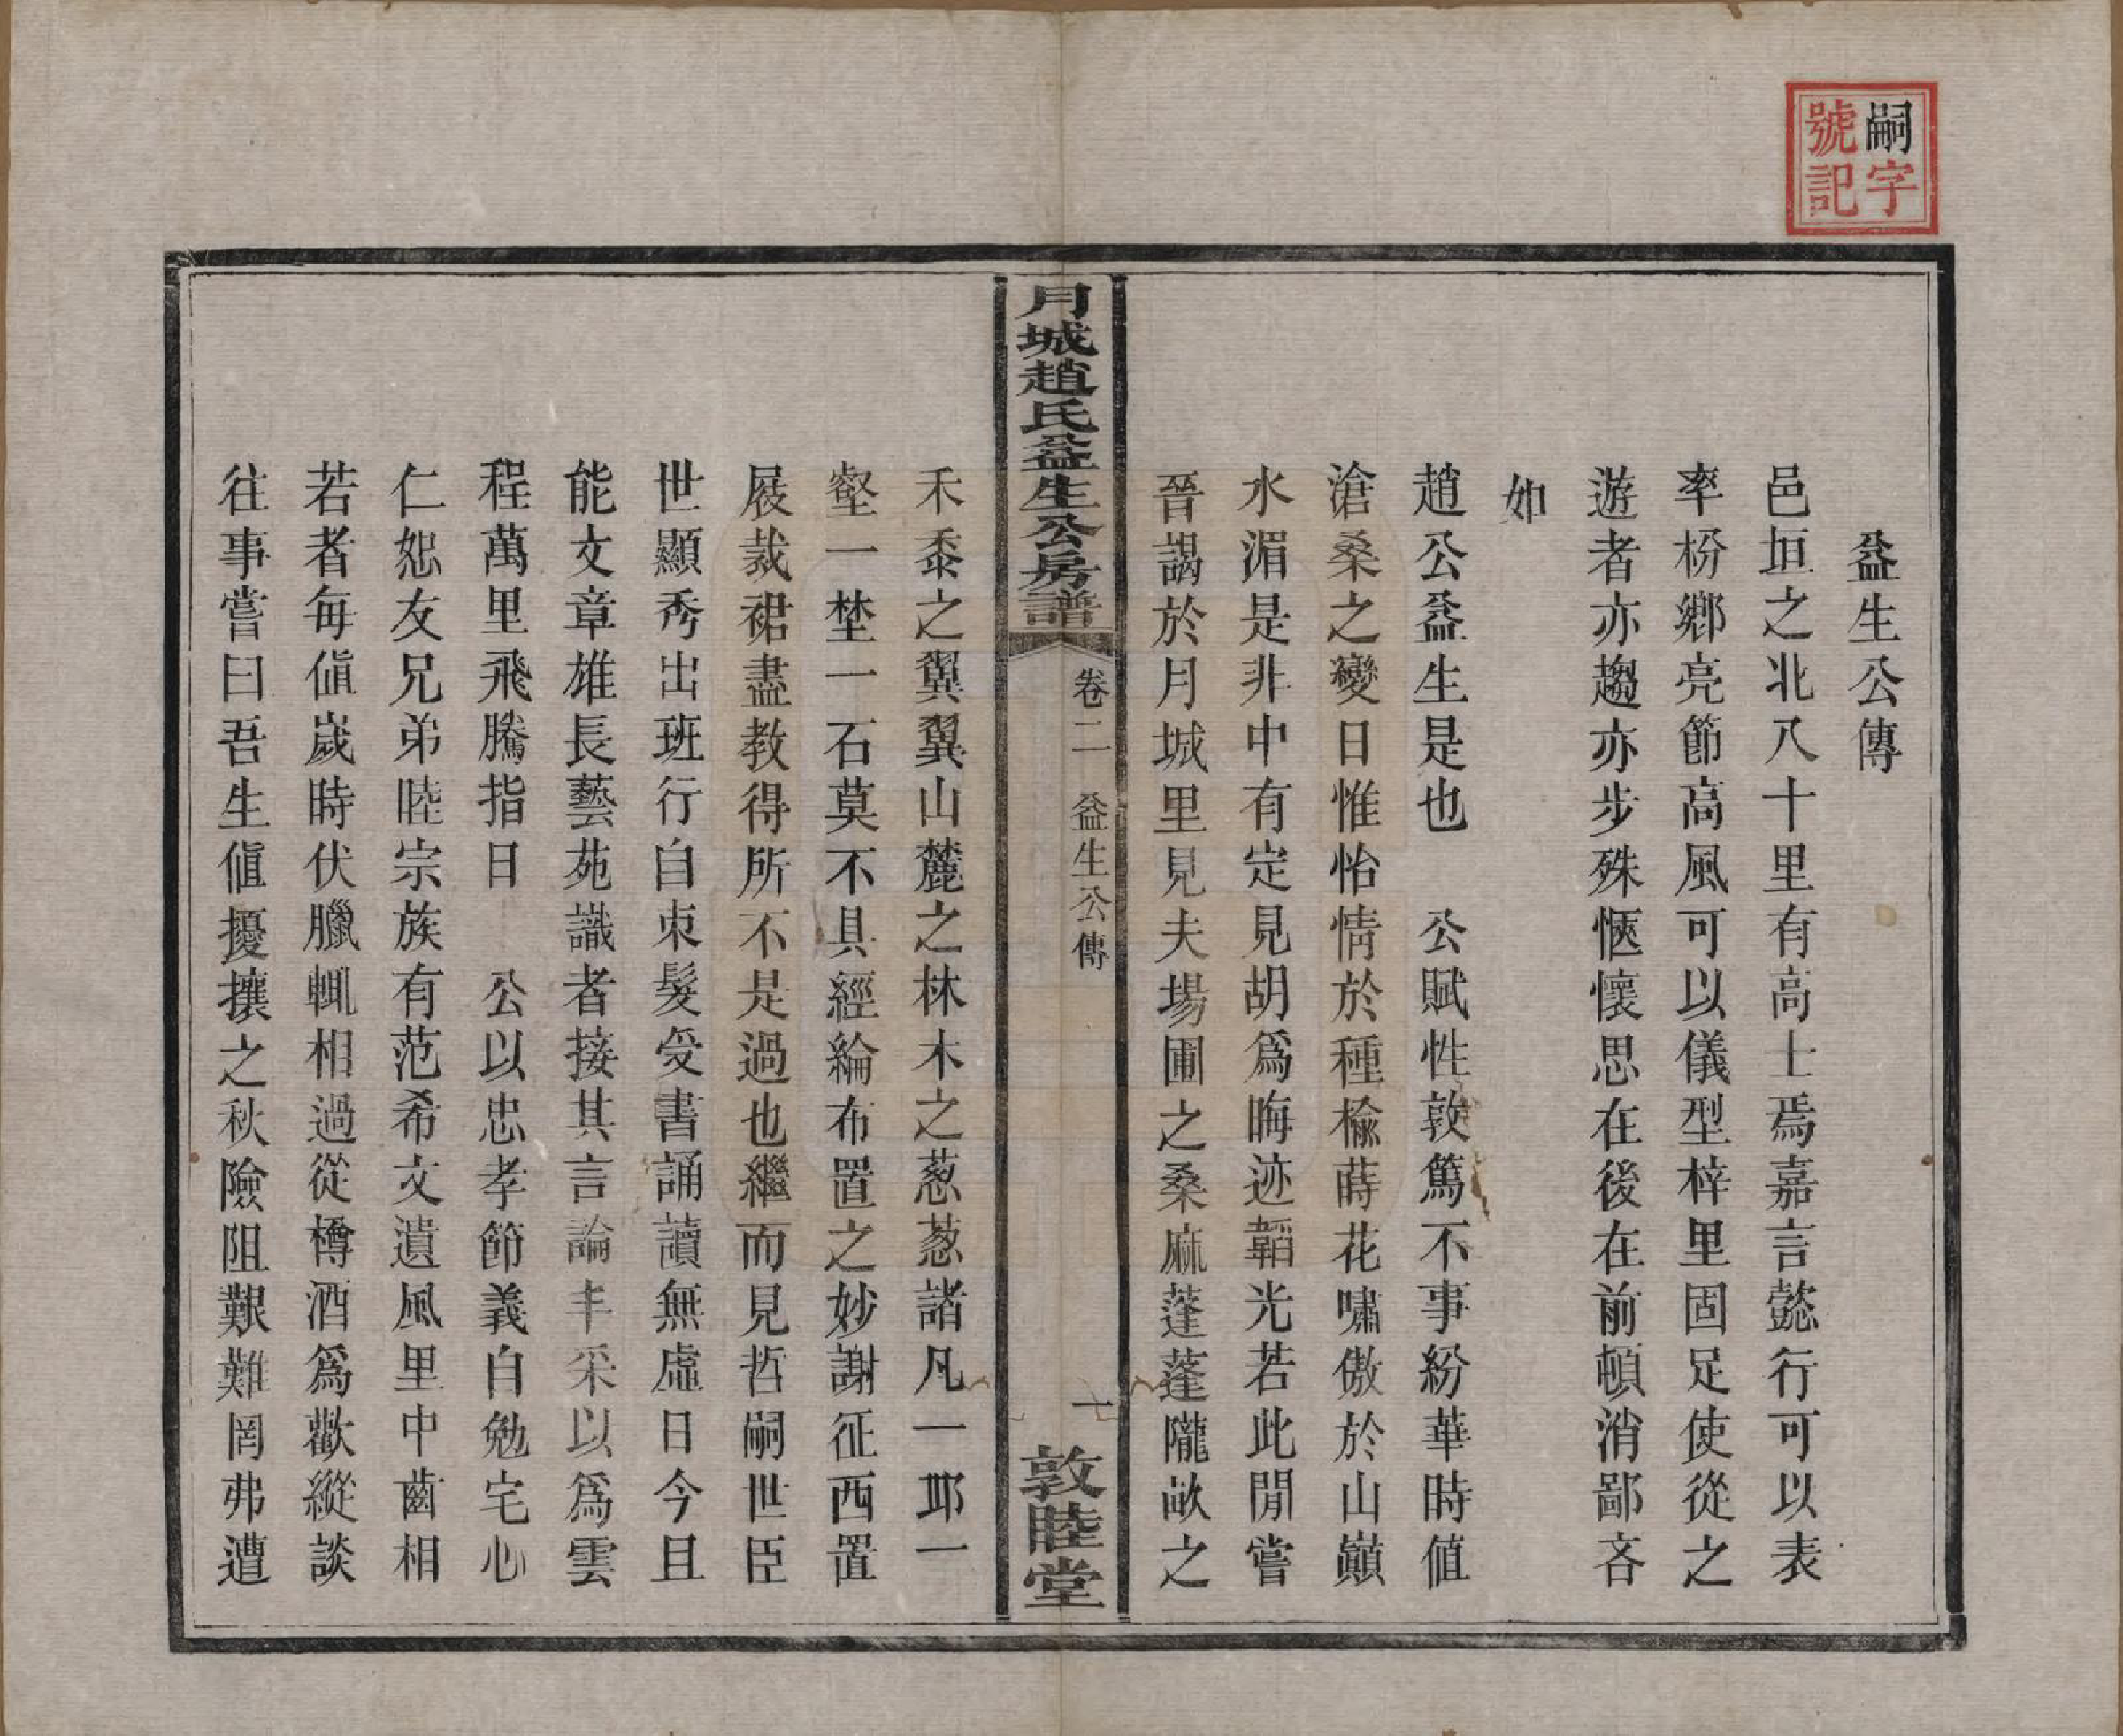 嗣字
號記
益生公傳
邑垣之北八十里有高士焉嘉言懿行可以表
率枌鄉亮節高風可以儀型梓里固足使從之
遊者亦趨亦步殊愜懷思在後在前頓消鄙吝
如
趙公益生是也　公賦性敦篤不事紛華時值
滄桑之變日惟怡情於種榆蒔花嘯傲於山巔
水湄是非中有定見胡爲晦迹韜光若此閒嘗
晉謁於月城里見夫場圃之桑麻蓬蓬隴畝之
月城趙氏益生公房譜　卷二　益生公傳　一　敦睦堂
禾黍之翼翼山麓之林木之葱葱諸凡一邱一
壑一埜一石莫不具經綸布置之妙謝征西置
屐裁裙盡教得所不是過也繼而見哲嗣世臣
世顯秀出班行自束髮受書誦讀無虛日今且
能文章雄長藝苑識者接其言論丰采以爲雲
程萬里飛騰指日　公以忠孝節義自勉宅心
仁恕友兄弟睦宗族有范希文遺風里中齒相
若者每値嵗時伏臘輒相過從樽酒爲歡縱談
往事嘗曰吾生値擾攘之秋險阻艱難罔弗遭